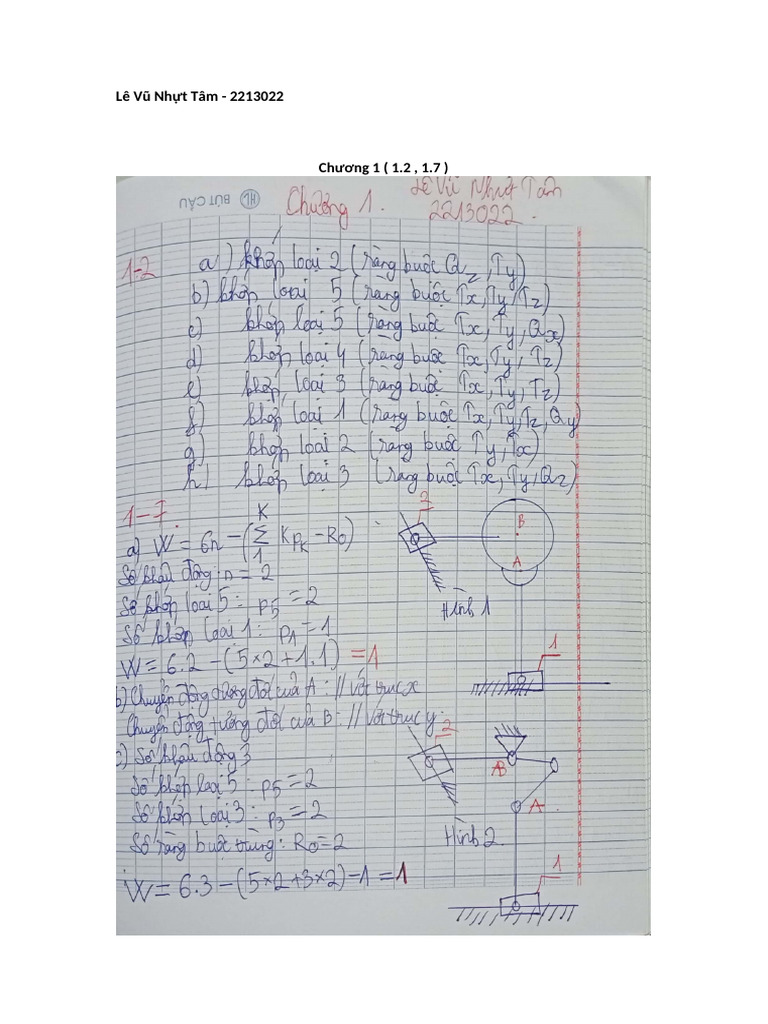 Lê Vũ Nhựt Tâm - 2213022
Chương 1 ( 1.2 , 1.7 )
HL BÚT CẦU
Chương 1.
Lê Vũ Nhựt Tâm
2213022.
1-2 a) khớp loại 2 (ràng buộc Qz, Ty)
b) khớp loại 5 (ràng buộc Tx, Ty, Tz)
c) khớp loại 5 (ràng buộc Tx, Ty, Qx)
d) khớp loại 4 (ràng buộc Tx, Ty, Tz)
e) khớp loại 3 (ràng buộc Tx, Ty, Tz)
f) khớp loại 1 (ràng buộc Tx, Ty, Tz, Qy)
g) khớp loại 2 (ràng buộc Ty, Tx)
h) khớp loại 3 (ràng buộc Tx, Ty, Qz)
1-7.
a) W = 6n - (K∑1 KPK - R0)
Số khâu động: n = 2
Số khớp loại 5: P5 = 2
Số khớp loại 1: P1 = 1
W = 6.2 - (5×2+1.1) = 1
b) Chuyển động tương đối của A: // với trục x
Chuyển động tương đối của B: // với trục y.
c) Số khâu động 3
Số khớp loại 5: P5 = 2
Số khớp loại 3: P3 = 2
Số ràng buộc trùng: R0 = 2
W = 6.3 - (5×2+3×2) - 1 = 1
2
B
A
Hình 1
1
2
B
A
Hình 2.
1